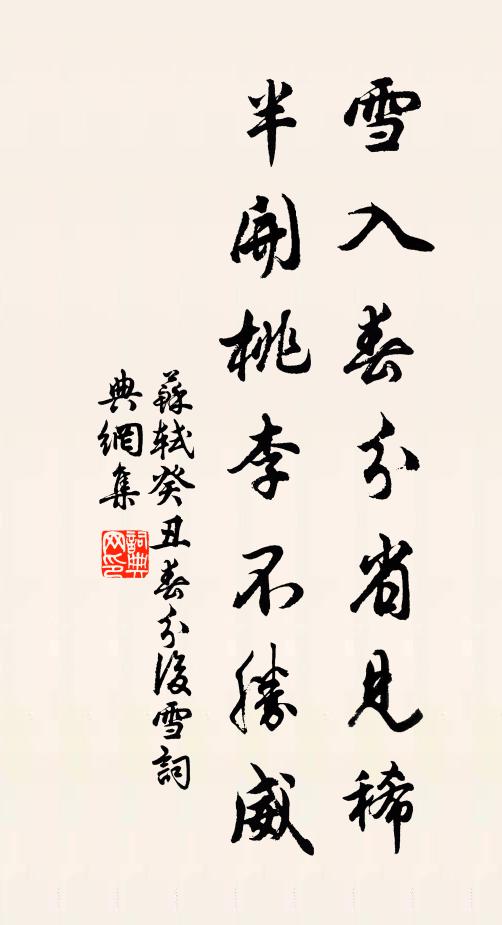 雪入春分省見稀
半開桃李不勝威
蘇軾癸丑春分後雪詞
典網集
詞典
网印